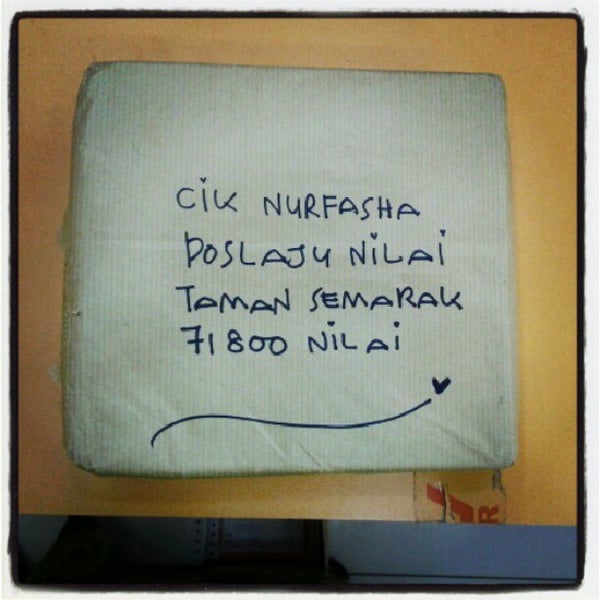 CiK NURFASHA
POSLAJU NiLAi
TAMAN SEMARAK
71800 NiLAi
R